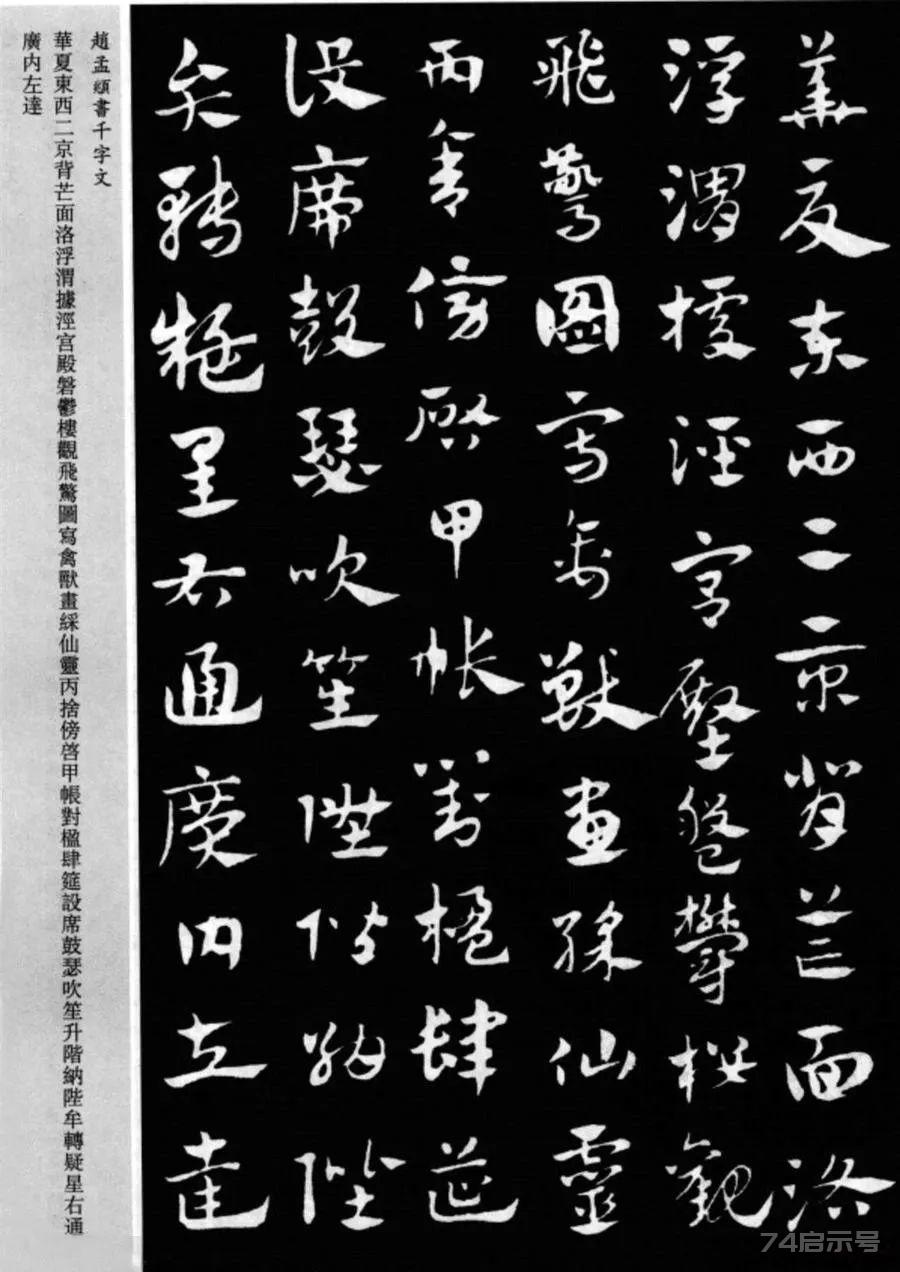 華夏東西二京背芒面洛
浮渭據涇宮殿盤鬱樓觀
飛驚圖寫禽獸畫綵仙靈
丙舍傍啓甲帳對楹肆筵
設席鼓瑟吹笙陞階納陛
弁轉疑星右通廣內左達
趙孟頫書千字文
華夏東西二京背芒面洛浮渭據涇宫殿磐鬱樓觀飛驚圖寫禽獸畫綵仙靈丙捨傍啓甲帳對楹肆筵設席鼓瑟吹笙升階納陛牟轉疑星右通
廣内左達
74启示号